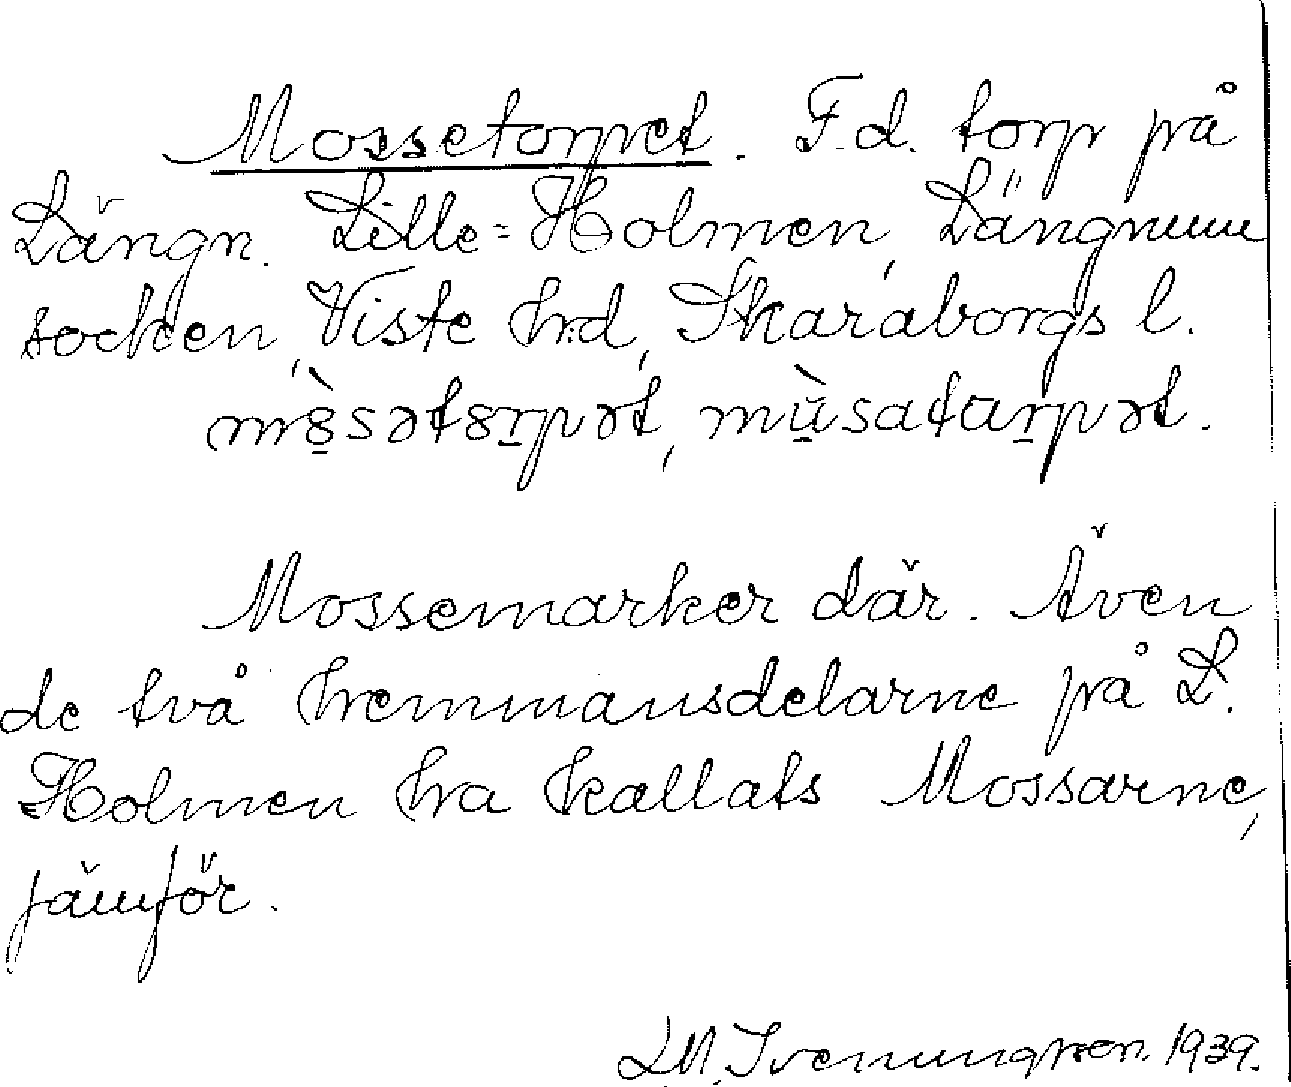 Mossetorpet. F.d. torp på
Längn. Lille=Holmen, Längnum
socken, Viste hrd, Skaraborgs l.
mò̠sətorpət, mù̠satarpət.
Mossemarker där. Även
de två hemmansdelarne på L.
Holmen ha kallats Mossarne,
jämför.
L.M. Svenungsson. 1939.